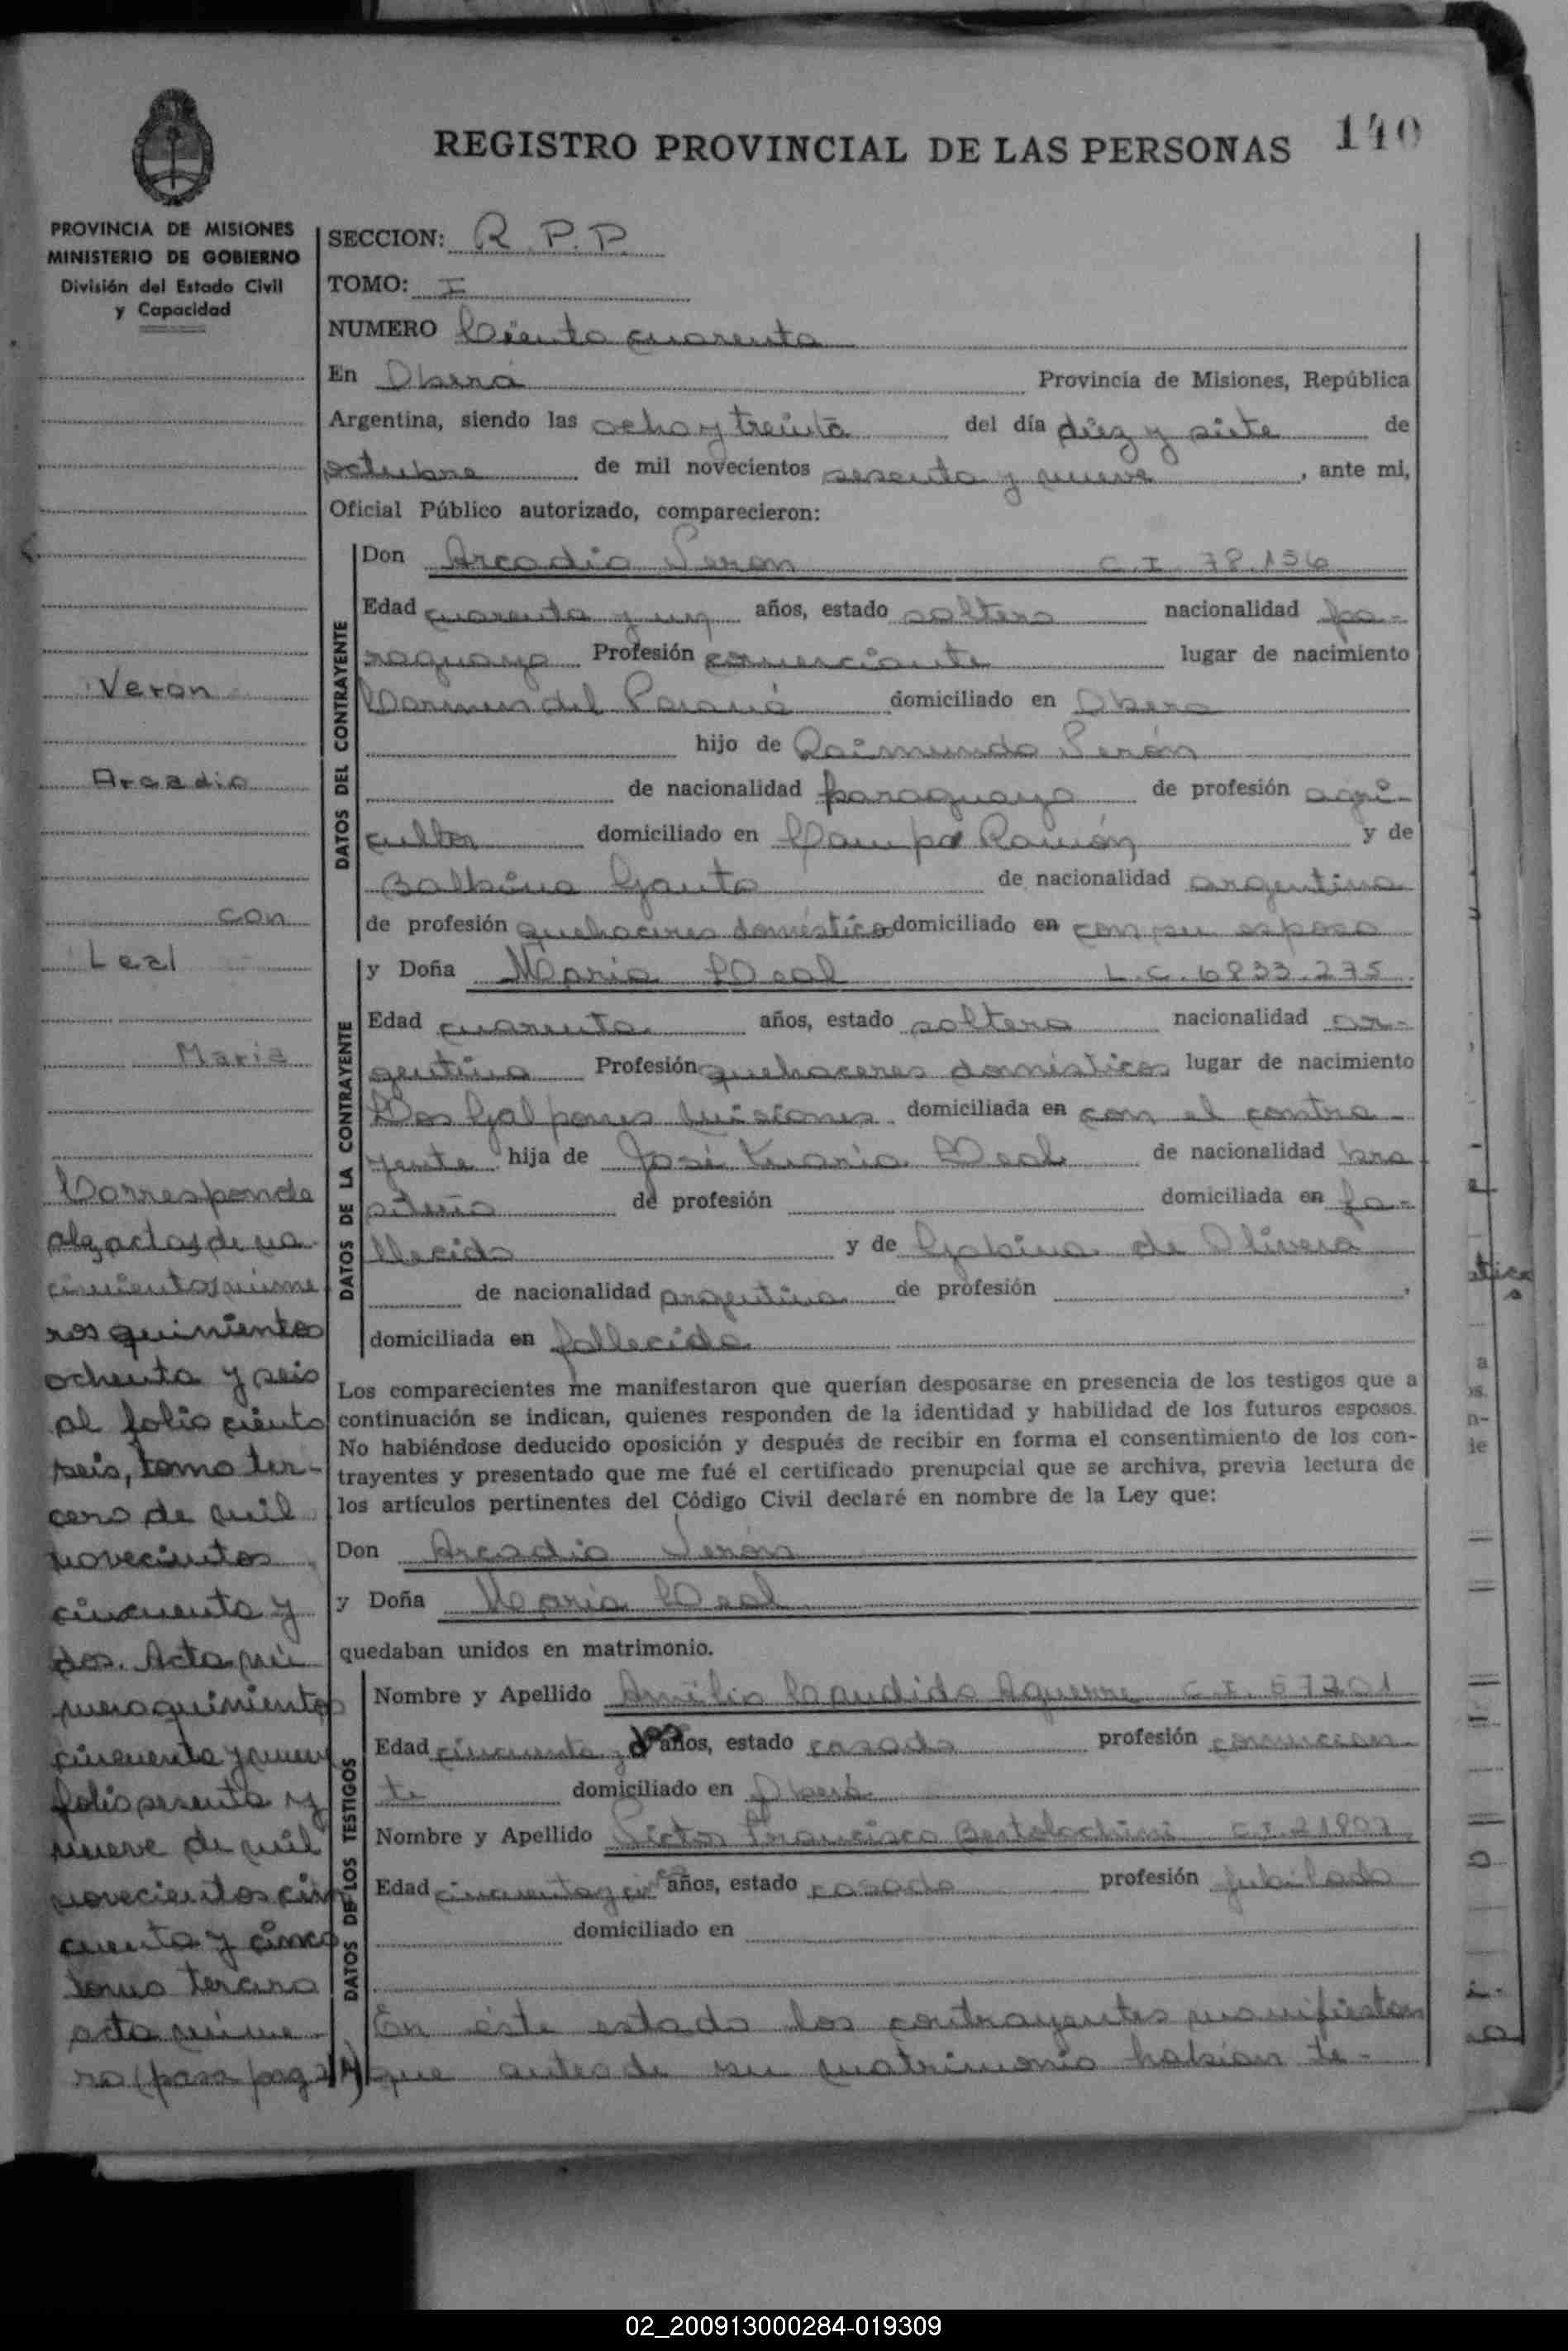 140
REGISTRO PROVINCIAL DE LAS PERSONAS
PROVINCIA DE MISIONES
MINISTERIO DE GOBIERNO
División del Estado Civil
y Capacidad
Veron
Arcadio
con
Leal
Maria
Corresponde
al
cincuenta núme
ros quinientos
ochenta y seis
al folio ciento
seis, tomo ter-
cero de mil
novecientos
cincuenta y
dos. Acta nú
mero quinientos
cincuenta y nueve
folio sesenta y
nueve de mil
novecientos cin
cuenta y cinco
tomo tercero
acta núme
ro (pasa pag
SECCION: R.P.P.
TOMO: I
NUMERO Ciento cuarenta
En Oberá Provincia de Misiones, República
Argentina, siendo las ocho y treinta del día diez y siete de
octubre de mil novecientos sesenta y nueve, ante mi,
Oficial Público autorizado, comparecieron:
DATOS DEL CONTRAYENTE
Don Arcadio Verón C.I. 78.156
Edad cuarenta y un años, estado soltero nacionalidad pa-
raguaya Profesión comerciante lugar de nacimiento
Carmen del Paraná domiciliado en Oberá
hijo de Raimundo Verón
de nacionalidad paraguaya de profesión agri-
cultor domiciliado en Campo Ramón y de
Balbina Gauto de nacionalidad argentina
de profesión quehaceres domésticos domiciliado en con su esposo
DATOS DE LA CONTRAYENTE
y Doña Maria Leal L.C. 6833.275
Edad cuarenta años, estado soltera nacionalidad ar-
gentina Profesión quehaceres domésticos lugar de nacimiento
Los Galpones Misiones domiciliada en con el contra-
yente hija de José Maria Leal de nacionalidad bra
sileña de profesión domiciliada en fa-
llecido y de Gabina de Olivera
de nacionalidad argentina de profesión ,
domiciliada en fallecida
Los comparecientes me manifestaron que querían desposarse en presencia de los testigos que a
continuación se indican, quienes responden de la identidad y habilidad de los futuros esposos.
No habiéndose deducido oposición y después de recibir en forma el consentimiento de los con-
trayentes y presentado que me fué el certificado prenupcial que se archiva, previa lectura de
los artículos pertinentes del Código Civil declaré en nombre de la Ley que:
Don Arcadio Verón
y Doña Maria Leal
quedaban unidos en matrimonio.
DATOS DE LOS TESTIGOS
Nombre y Apellido Amilio Candido Aguerre C.I. 57201
Edad cincuenta y dos años, estado casado profesión comercian
te domiciliado en Oberá
Nombre y Apellido Victor Francisco Bertolochini C.I. 21807
Edad cincuenta y años, estado casado profesión jubilado
domiciliado en
En éste estado los contrayentes manifiestan
que antes de su matrimonio habian te-
02_200913000284-019309